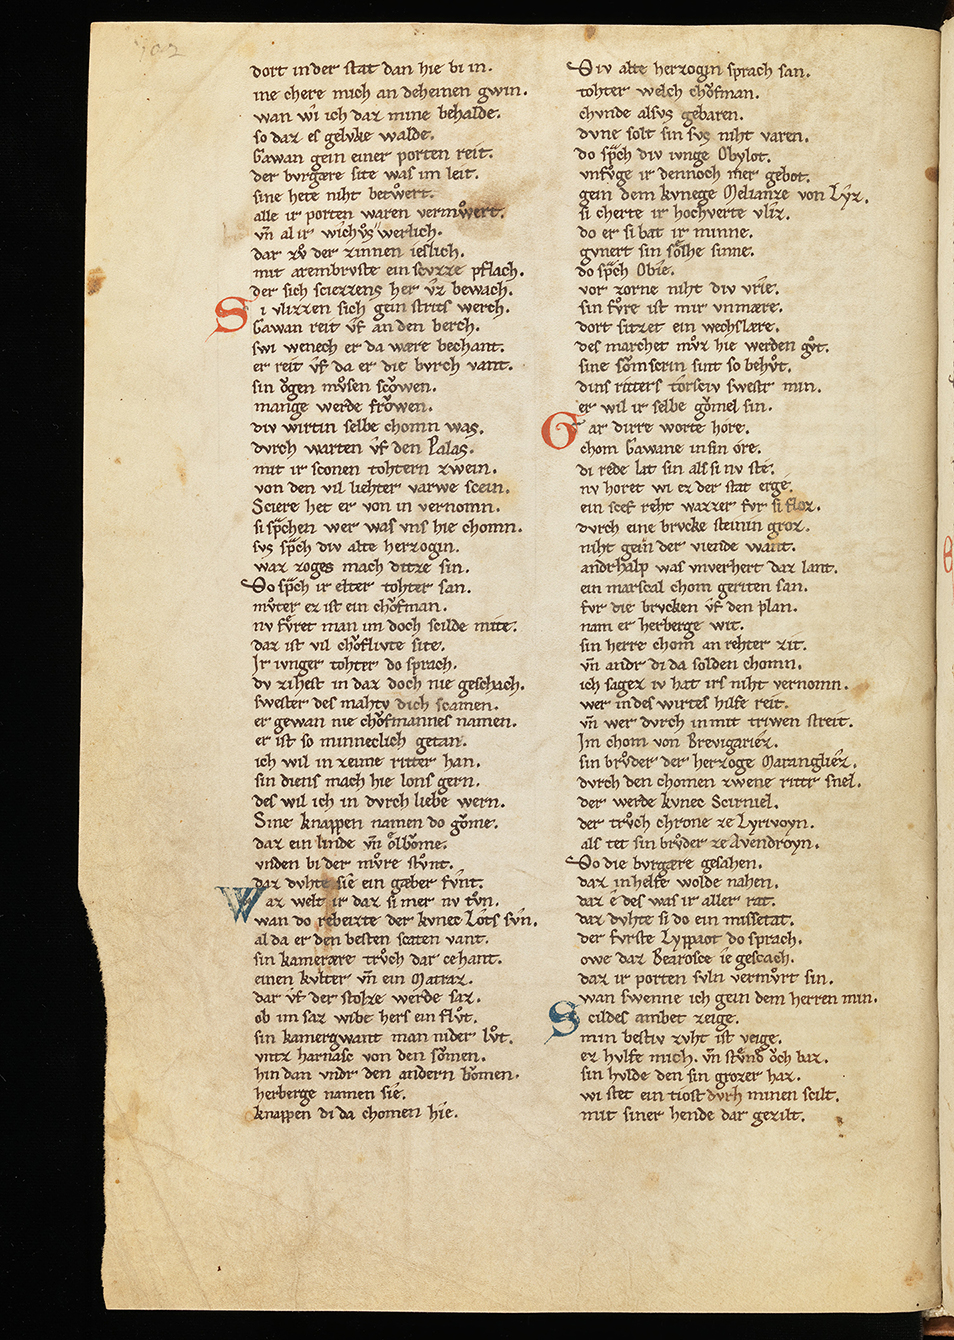 102
dort inder stat dan hie bi in.
ine chere mich an deheinen gwin.
wan wi ich daz mine behalde.
so daz es gelvke walde.
Gawan gein einer porten reit.
der bvrgære site was im leit.
sine hete niht betvͦert.
alle ir porten waren vermvͦwert.
vn̄ al ir wichvͦs werlich.
dar zvͦ der zinnen ieslich.
mit arembrvste ein scvzze pflach.
der sich sciezzens her vͤz bewach.
Si vlizzen sich gein strits werch.
Gawan reit vͤf an den berch.
swi wenech er da wære bechant.
er reit vͤf da er die bvrch vant.
sin oͮgen mvͦsen scoͮwen.
mange werde froͮwen.
div wirtin selbe chomn was.
dvrch warten vͤf den Palas.
mit ir sconen tohtern zwein.
von den vil liehter varwe scein.
Sciere het er von in vernomn.
si sp̄chen wer mac vns hie chomn.
svs sp̄ch div alte herzogin.
waz zoges mach ditze sin.
Do sp̄ch ir elter tohter san.
mvͦter ez ist ein choͮfman.
nv fvͤret man im doch scilde mite.
daz ist vil choͮflivte site.
Ir ivnger tohter do sprach.
dv zihest in daz doch nie geschach.
swester des mahtv dich scamen.
er gewan nie choͮfmannes namen.
er ist so minneclich getan.
ich wil in zeime ritter han.
sin diens mach hie lons gern.
des wil ich in dvrch liebe wern.
Sine knappen namen do goͮme.
daz ein linde vn̄ oͤlboͮme.
vnden bi der mvͦre stvͦnt.
daz dvhte sie ein gæber fvͤnt.
Waz welt ir daz si mer nv tvͦn.
wan do rebeizte der kvnec Lots svͤn.
al da er den besten scaten vant.
sin kamerære trvͦch dar cehant.
einen kvlter vn̄ ein Matraz.
dar vͤf der stolze werde saz.
ob im saz wibe hers ein flvͦt.
sin kamergwant man nider lvͦt.
vntz harnasc von den soͮmen.
hin dan vndr den andern boͮmen.
herberge namen sie.
knappen di da chomen hie.
Div alte herzogin sprach san.
tohter welch choͮfman.
chvnde alsvs gebaren.
dvne solt sin svs niht varen.
do sp̄ch div ivnge Obylot.
vnfvͦge ir dennoch mer gebot.
gein dem kvnege Melianze von Lyz.
si cherte ir hochverte vliz.
do er si bat ir minne.
gvnert sin soͤlhe sinne.
do sp̄ch Obie.
vor zorne niht div vrie.
sin fvͦre ist mir vnmære.
dort sitzet ein wechslære.
des marchet mvͦz hie werden gvͦt.
sine soͮmscrin sint so behvͦt.
dins ritters torsciv swestr min.
er wil ir selbe goͮmel sin.
Gar dirre worte hore.
chom Gawane in sin ore.
di rede lat sin als si nv ste.
nv horet wi ez der stat erge.
ein scef reht wazzer fvr si floz.
dvrch eine brvcke steinin groz.
niht gein der viende want.
andrhalp was vnverhert daz lant.
ein marscal chom geriten san.
fvr die brvcken vͤf den plan.
nam er herberge wit.
sin herre chom an rehter zit.
vn̄ andr di da solden chomn.
ich sagez iv hat irs niht vernomn.
wer in des wirtes hilfe reit.
vn̄ wer dvrch in mit triwen streit.
Im chom von Brevigariez.
sin brvͦder der herzoge Marangliez.
dvrch den chomen zwene rittr snel.
der werde kvnec Scirniel.
der trvͦch chrone ze Lyrivoyn.
als tet sin brvͦder ze Avendroyn.
Do die bvrgære gesahen.
daz in helfe wolde nahen.
daz e des was ir aller rat.
daz dvhte si do ein missetat.
der fvrste Lyppaot do sprach.
owe daz Bearosce ie gescach.
daz ir porten svln vermvͦrt sin.
wan swenne ich gein dem herren min.
Scildes ambet zeige.
min bestiv zvht ist veige.
ez hvlfe mich. vn̄ stvͤnd oͮch baz.
sin hvlde den sin grozer haz.
wi stet ein tiost dvrh minen scilt.
mit siner hende dar gezilt.